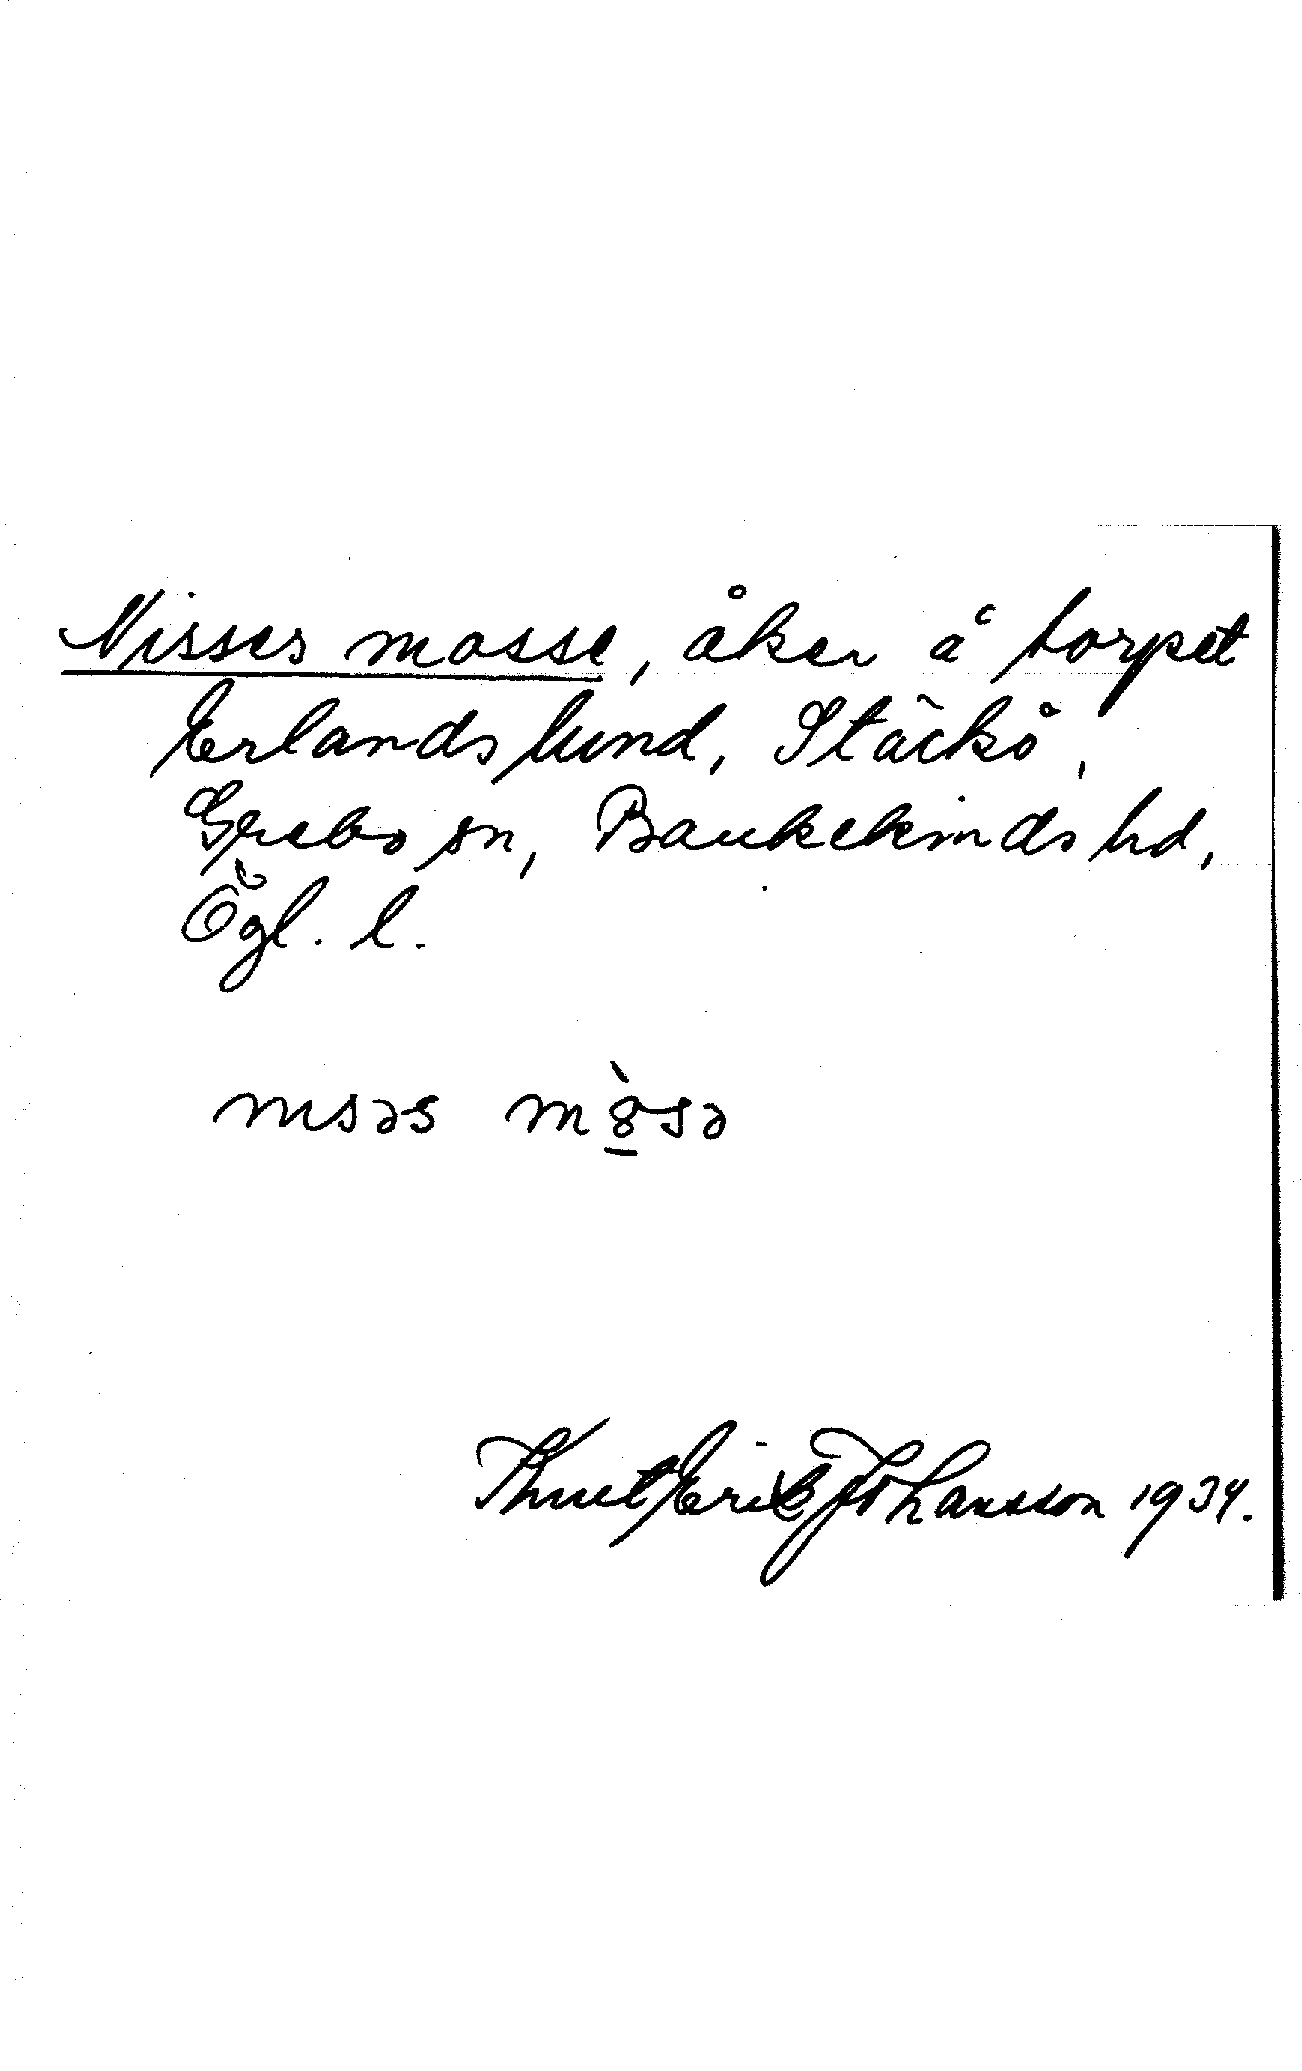 Nisses mosse, åker å torpet
Erlandslund, Stäckö,
Grebo sn, Bankekinds hd,
Ögl. l.
nɪsəs
Knut Erik Johansson 1934.